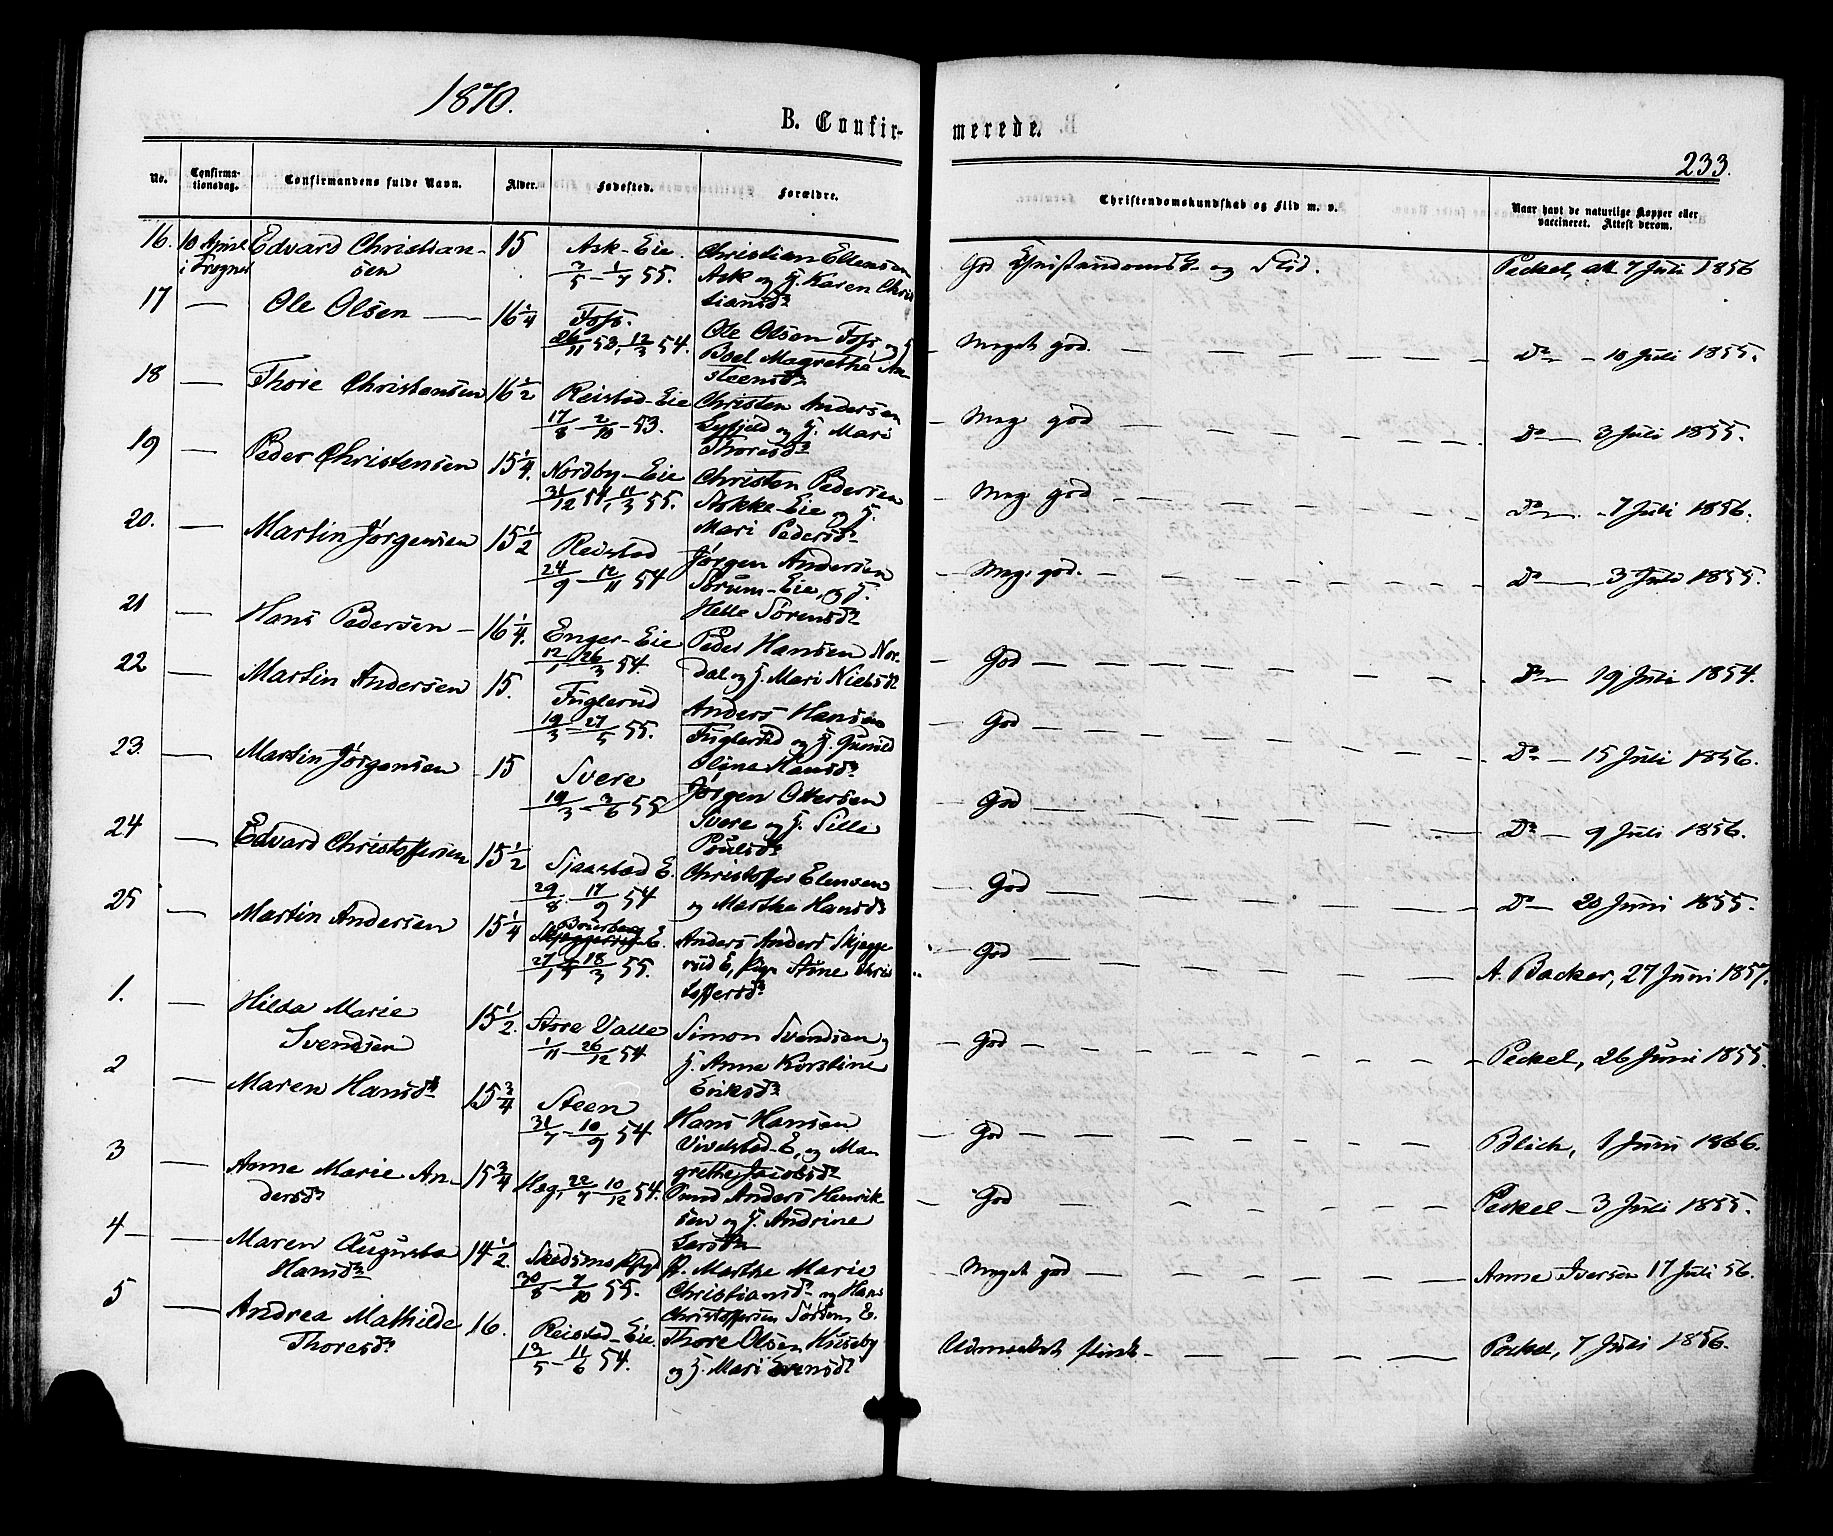 1870.
B. Confirmerede.
233.
No. Confirmationsdag. Confirmandens fulde Navn. Alder. Fødested. Forældre. Christendomskundskab og Flid m. v. Naar havt de naturlige Kopper eller vaccineret. Attest derom.
16. 10 April i Frogner Edvard Christiansen 15 Ask-Eie. 7/5 - 1/7 55. Christian Ellensen Ask og H. Karen Christiansdr God Christendomsk. og Flid. Peckel, att 7 Juli 1856
17 — Ole Olsen — 16 1/4 Foss. 26/11 53, 12/3 54. Ole Olsen Foss og H. Boel Magrethe Ansteensdr — Meget god. Do — 10 Juli 1855.
18 — Thore Christensen 16 1/2 Reistad-Eie 17/8 - 2/10 - 53. Christen Andersen og H. Mari Thoresdr — Meg god Do — 3 Juli 1855.
19 — Peder Christensen 15 1/4. Nordby-Eie 31/12 54, 11/3 55. Christen Pedersen Askke-Eie og H. Mari Pedersdr — Meg god Do — 7 Juli 1856.
20. — Martin Jørgensen 15 1/2 Reistad 24/9 - 12/11 54 Jørgen Andersen Sørum-Eie, og H. Helle Sørensdr — Meg. god. Do — 3 Juli 1855.
21 — Hans Pedersen — 16 1/4. Enger-Eie 12/1 26/3 54. Peder Hansen Nordal og H. Mari Nielsdr — God Do — 19 Juli 1854.
22 — Martin Andersen 15. Fuglerud 19/3 - 27/5 55. Anders Hansen Fuglerud og H. Gunild Oline Hansdr — God Do — 15 Juli 1856.
23. — Martin Jørgensen — 15 Svere 19/3 - 3/6 55 Jørgen Ottersen Svere og H. Sille Poulsdr — God Do — 9 Juli 1856.
24 — Edvard Christoffersen 15 1/2 Sjaastad E. 29/8 - 17/9 54 Christoffer Elensen og Marthe Hansdr — God Do — 20 Juni 1855.
25 — Martin Andersen 15 1/4 E. 27/1 - 18/3 55. Anders Anders Skjeggerud E, Pige Stine Christoffersdr — God A. Backer, 27 Juni 1857.
1. — Hilda Marie Svendsen 15 1/2. Store Valle 1/11 - 26/12 54 Simon Svendsen og H. Anne Kerstine Eriksdr — God Peckel, 26 Juni 1855.
2 — Maren Hansdr 15 3/4 Steen 31/7 - 10/9 54 Hans Hansen Vivelstad-E, og Magrethe Jacobsdr — God Blich, 1 Juni 1866.
3 — Anne Marie Andersdr 15 3/4 Hæg, 22/7 - 10/12 54. Anders Henriksen og H. Andrine Larsdr — God Peckel — 3 Juli 1855.
4 — Maren Augusta Hansdr 14 1/2. 30/8 - 7/10 55. P. Marthe Marie Christiansdr og Hans Christoffersen Sørum, E. — Meget god Anne Iversen 17 Juli 56.
5 — Andrea Mathilde Thoresdr 16. Reistad-Eie 13/5 - 11/6 54. Thore Olsen Huseby og H. Mari Evensdr Udmærket flink — Peckel, 7 Juli 1856.